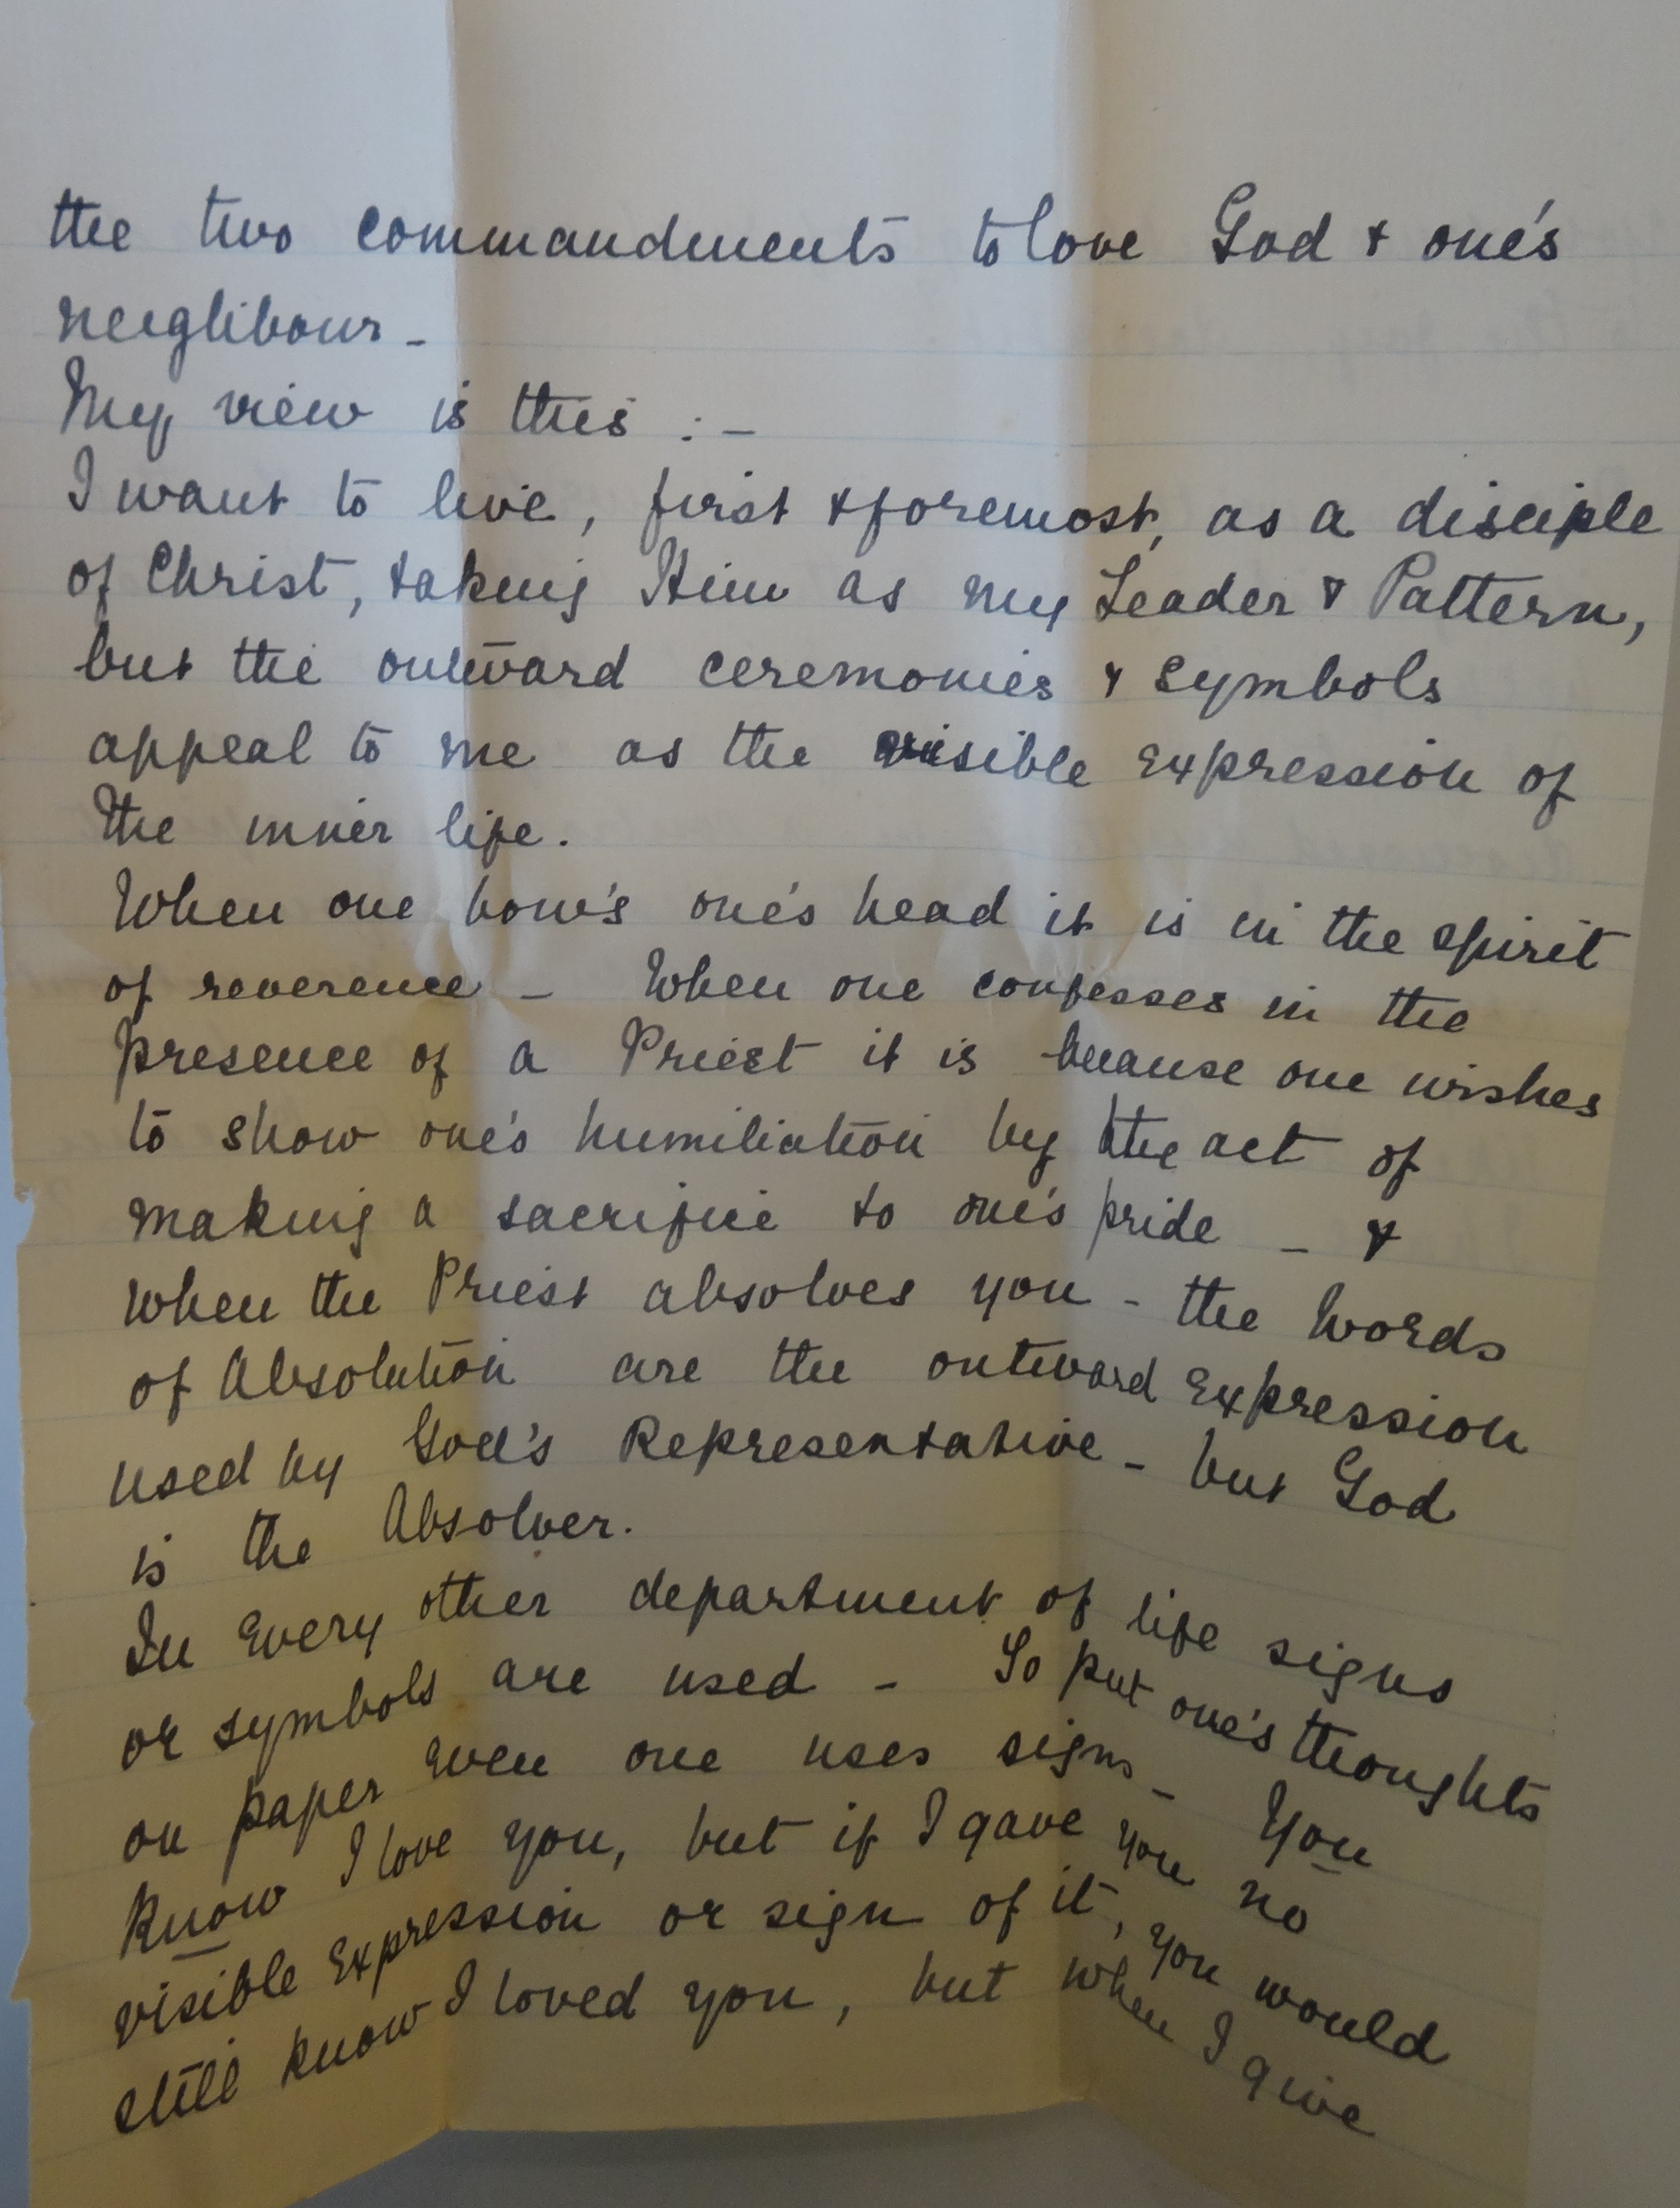 the two commandments to love God & one's
neighbour -
My view is this : -
I want to live, first & foremost, as a disciple
of Christ, taking Him as my Leader & Pattern,
but the outward ceremonies & symbols
appeal to me as the visible expression of
the inner life.
When one bow's one's head it is in the spirit
of reverence - When one confesses in the
presence of a Priest it is because one wishes
to show one's humiliation by the act of
making a sacrifice to one's pride - &
when the Priest absolves you - the words
of Absolution are the outward expression
used by God's Representative - but God
is the Absolver.
In every other department of life signs
or symbols are used - To put one's thoughts
on paper even one uses signs - You
know I love you, but if I gave you no
visible expression or sign of it, you would
still know I loved you, but when I give